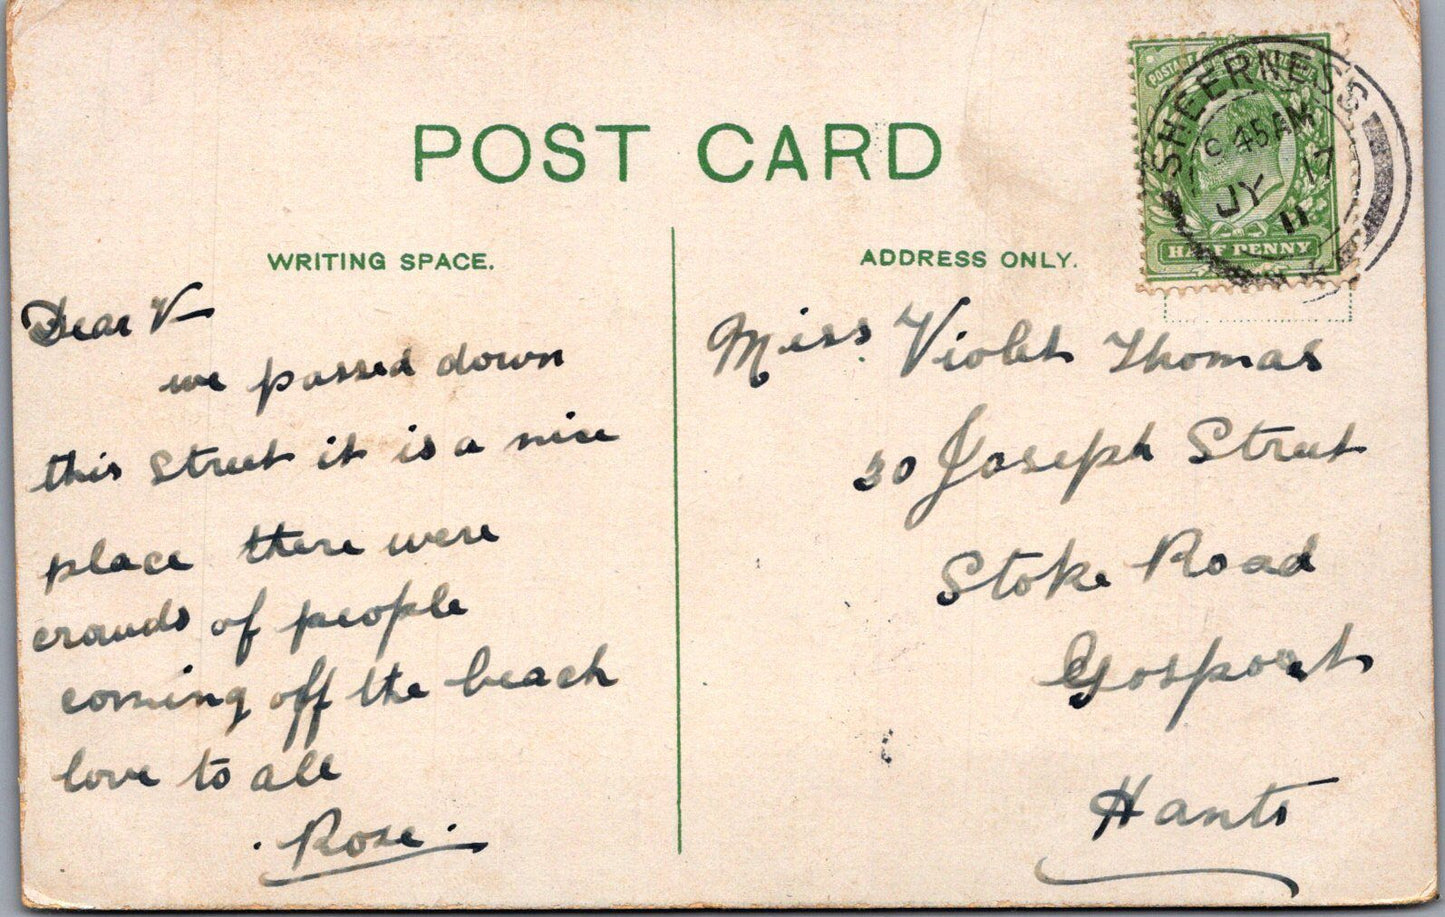 POST CARD
WRITING SPACE.
Dear V—
we passed down
this Street it is a nice
place there were
crowds of people
coming off the beach
love to all
. Rose .
ADDRESS ONLY.
Miss Violet Thomas
30 Joseph Street
Stoke Road
Gosport
Hants
HALF PENNY
SHEERNESS
45 AM
JY 17
11